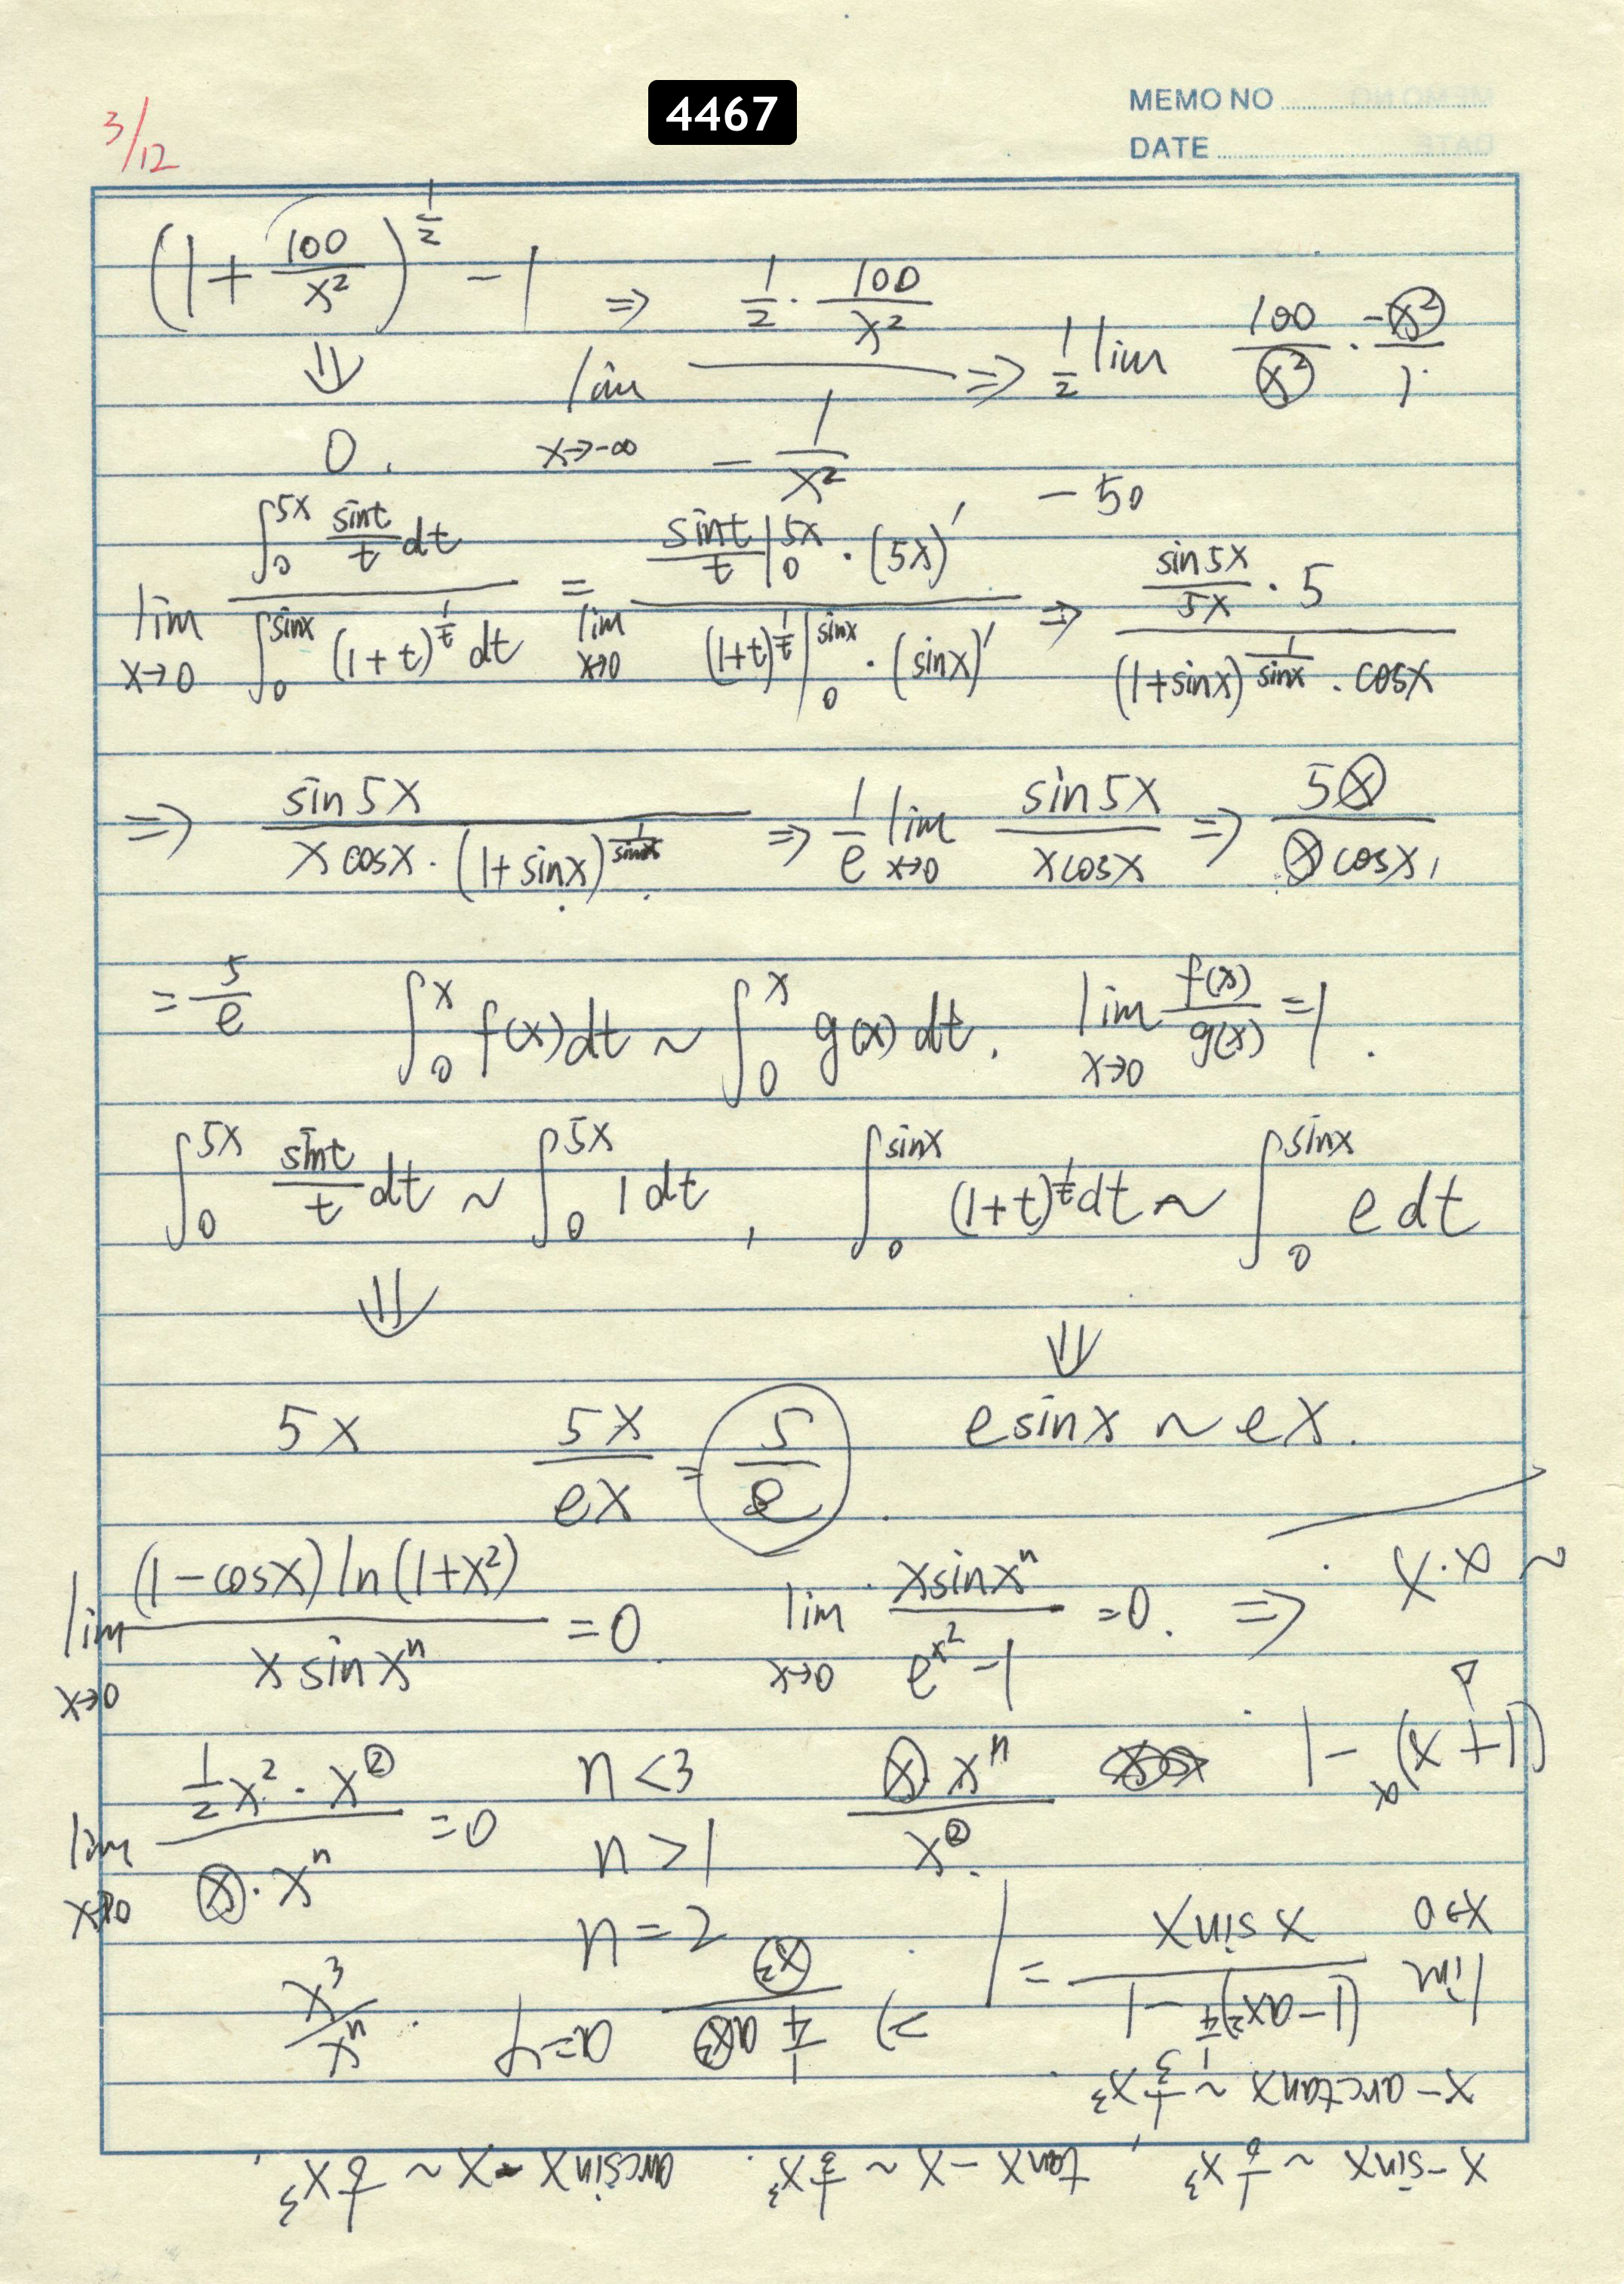 4467
MEMO NO
DATE
3/12
(1+100/x²)^(1/2) - 1 ⇒ lim x→-∞ (1/2 · 100/x²)/(- 1/x²) ⇒ 1/2 lim 100/x² · -x²/1
⇓
0.
-50
lim x→0 (∫₀^(5x) sint/t dt)/(∫₀^(sinx) (1+t)^(1/t) dt) = lim x→0 (sint/t |₀^(5x) · (5x)′)/((1+t)^(1/t) |₀^(sinx) · (sinx)′) ⇒ (sin5x/5x · 5)/((1+sinx)^(1/sinx) · cosx)
⇒ sin5x/(x cosx · (1+sinx)^(1/sinx)) ⇒ 1/e lim x→0 sin5x/(x cosx) ⇒ 5x/(x cosx)
= 5/e ∫₀^x f(x)dt ~ ∫₀^x g(x)dt. lim x→0 f(x)/g(x) = 1.
∫₀^(5x) sint/t dt ~ ∫₀^(5x) 1dt, ∫₀^(sinx) (1+t)^(1/t) dt ~ ∫₀^(sinx) e dt
⇓ ⇓
5x 5x/ex = 5/e. esinx ~ ex.
lim x→0 (1-cosx)ln(1+x²)/(x sinxⁿ) = 0 lim x→0 x sinxⁿ/(e^(x²)-1) = 0. ⇒
lim x→0 (1/2 x² · x²)/(x · xⁿ) = 0 n<3 x · xⁿ/x²
n>1
n=2
x³/xⁿ
(x+1)^α - 1
~ α·x
x-sinx ~ 1/6 x³, tanx-x ~ 1/3 x³. arcsinx-x ~ 1/6 x³,
x-arctanx ~ 1/3 x³
lim x→0 ((1-ax²)^(1/4) - 1)/(x sinx) = 1 ⇒ (1/4 ax²)/(x²) a=-4